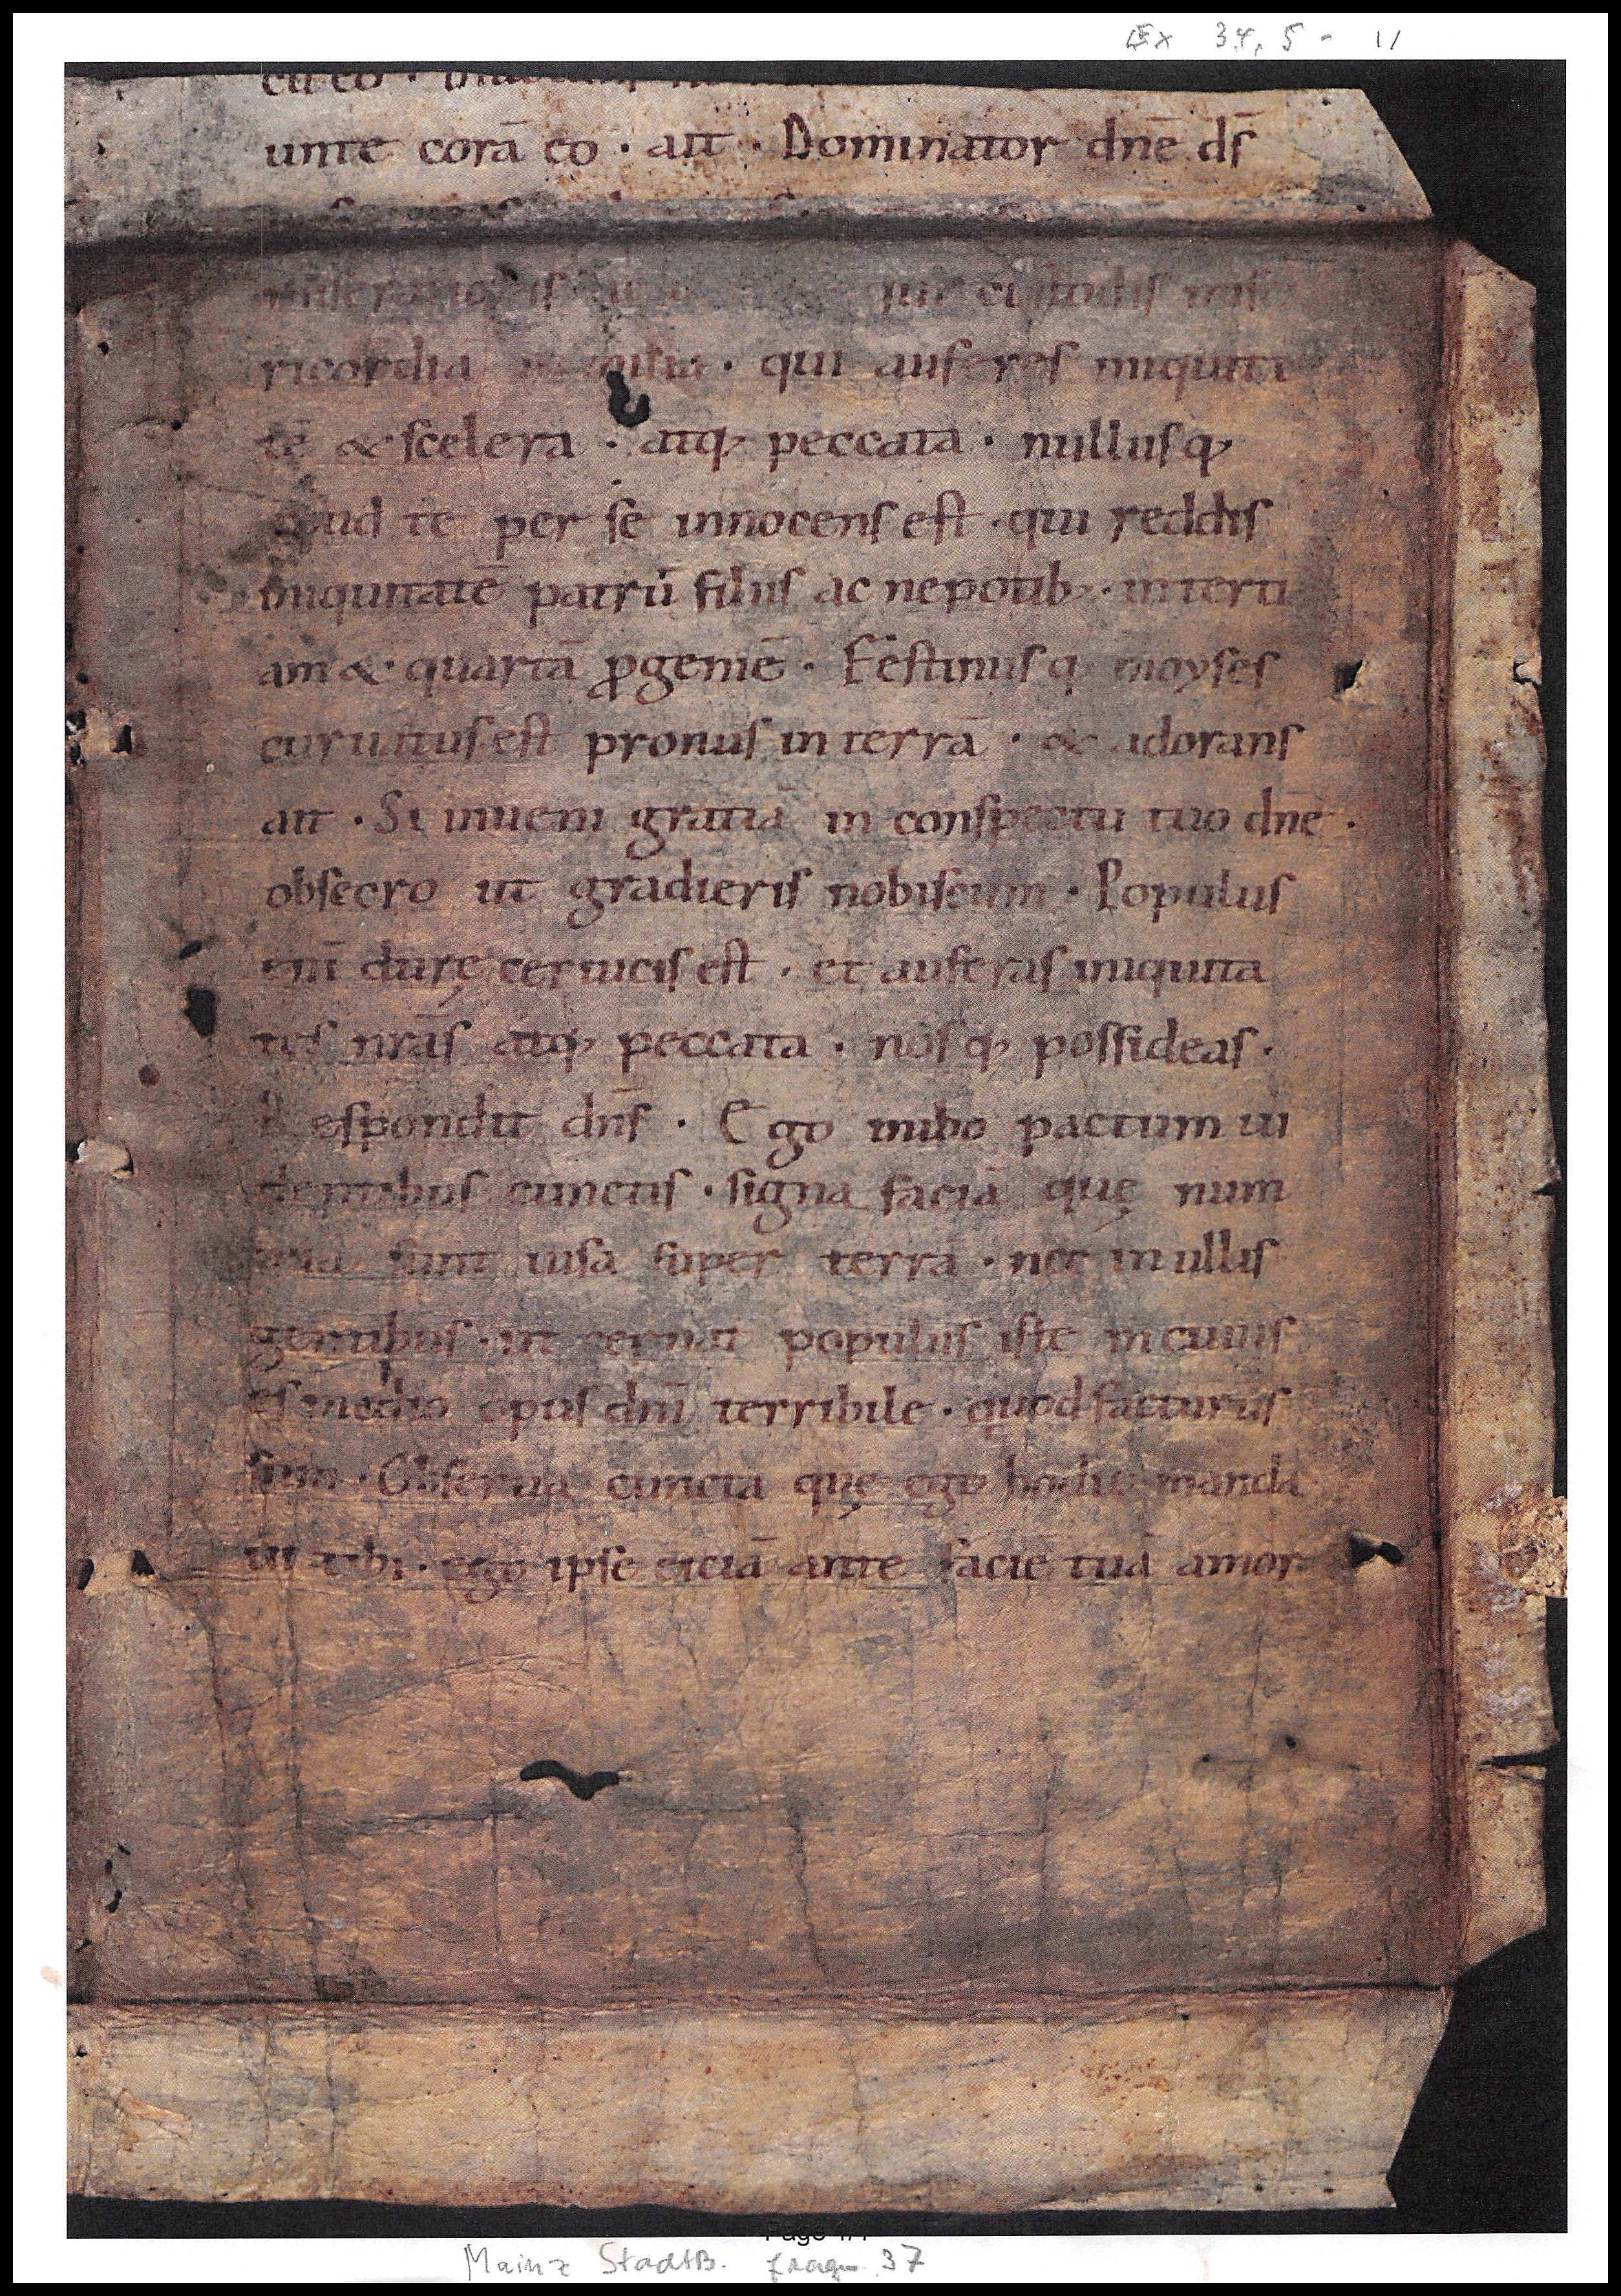 Ex 34, 5 - 11
cu eo ·
unte corā eo · ait · Dominator dnē ds̄
qui custodis mise
ricordiā · qui aufers iniquita
tē & scelera · atq; peccata · nullusq;
apud te per se innocens est · qui reddis
iniquitatē patrū filiis ac nepotib; · in terti
am & quartā ꝓgeniē · Festinusq; moyses
curuatus est pronus in terrā · & adorans
ait · Si inueni gratiā in conspectu tuo dnē ·
obsecro ut gradieris nobiscum · Populus
enī durę ceruicis est · et auferas iniquita
tes nrās atq; peccata · nosq; possideas ·
Respondit dns̄ · Ego inibo pactum ui
dentibus cunctis · signa faciā quę num
quā sunt uisa super terrā · nec in ullis
gentibus · ut cernat populus iste in cuius
es medio opus dnī terribile · quod facturus
sum · Obserua cuncta quę ego hodie manda
ui tibi · ego ipse eiciā ante faciē tuā amor
Page 1/1
Mainz StadtB. fragm 37